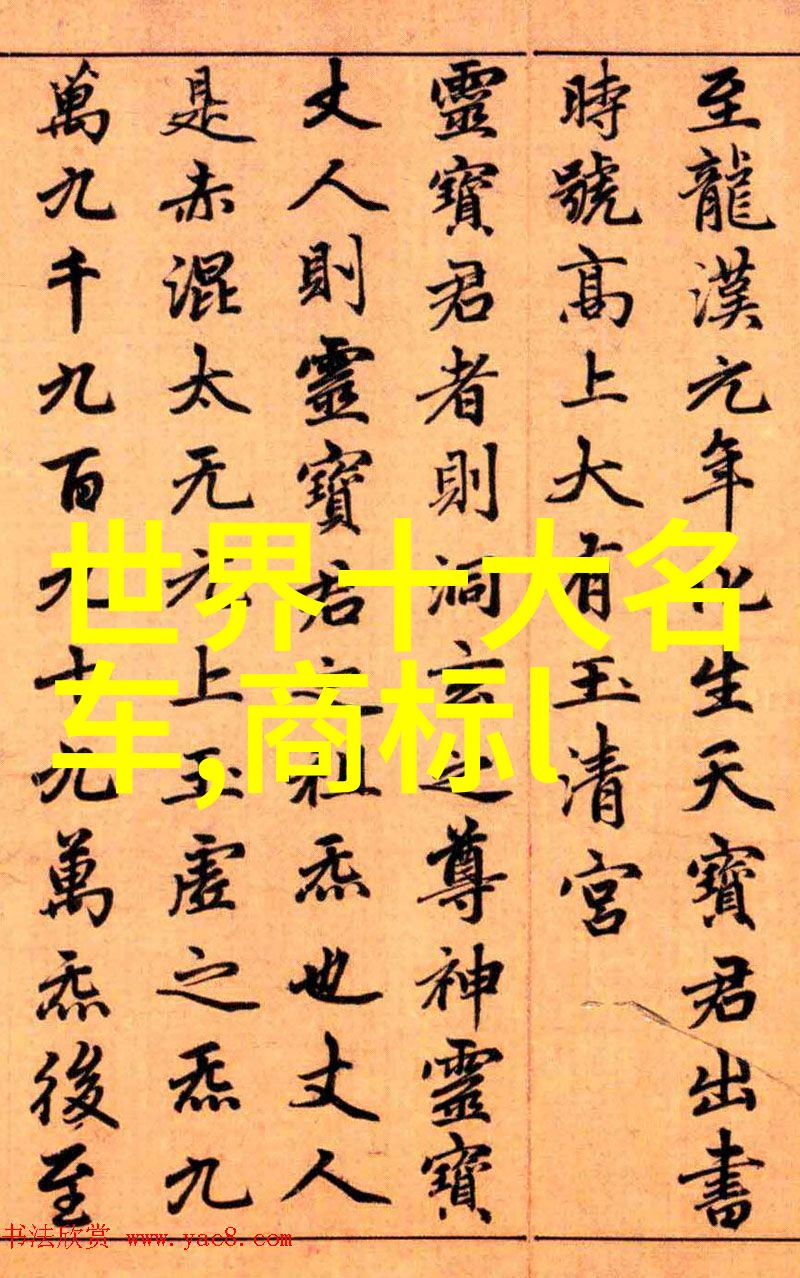 至龍漢元年化生天寶君出書
時號高上大有玉清宮
靈寶君者則洞玄之尊神靈寶
丈人則靈寶君之祖炁也丈人
是赤混太无元上玉虛之炁九
萬九千九百九十九萬炁後至
世界十大名
车,商标l
书法欣赏 www.yac8.com